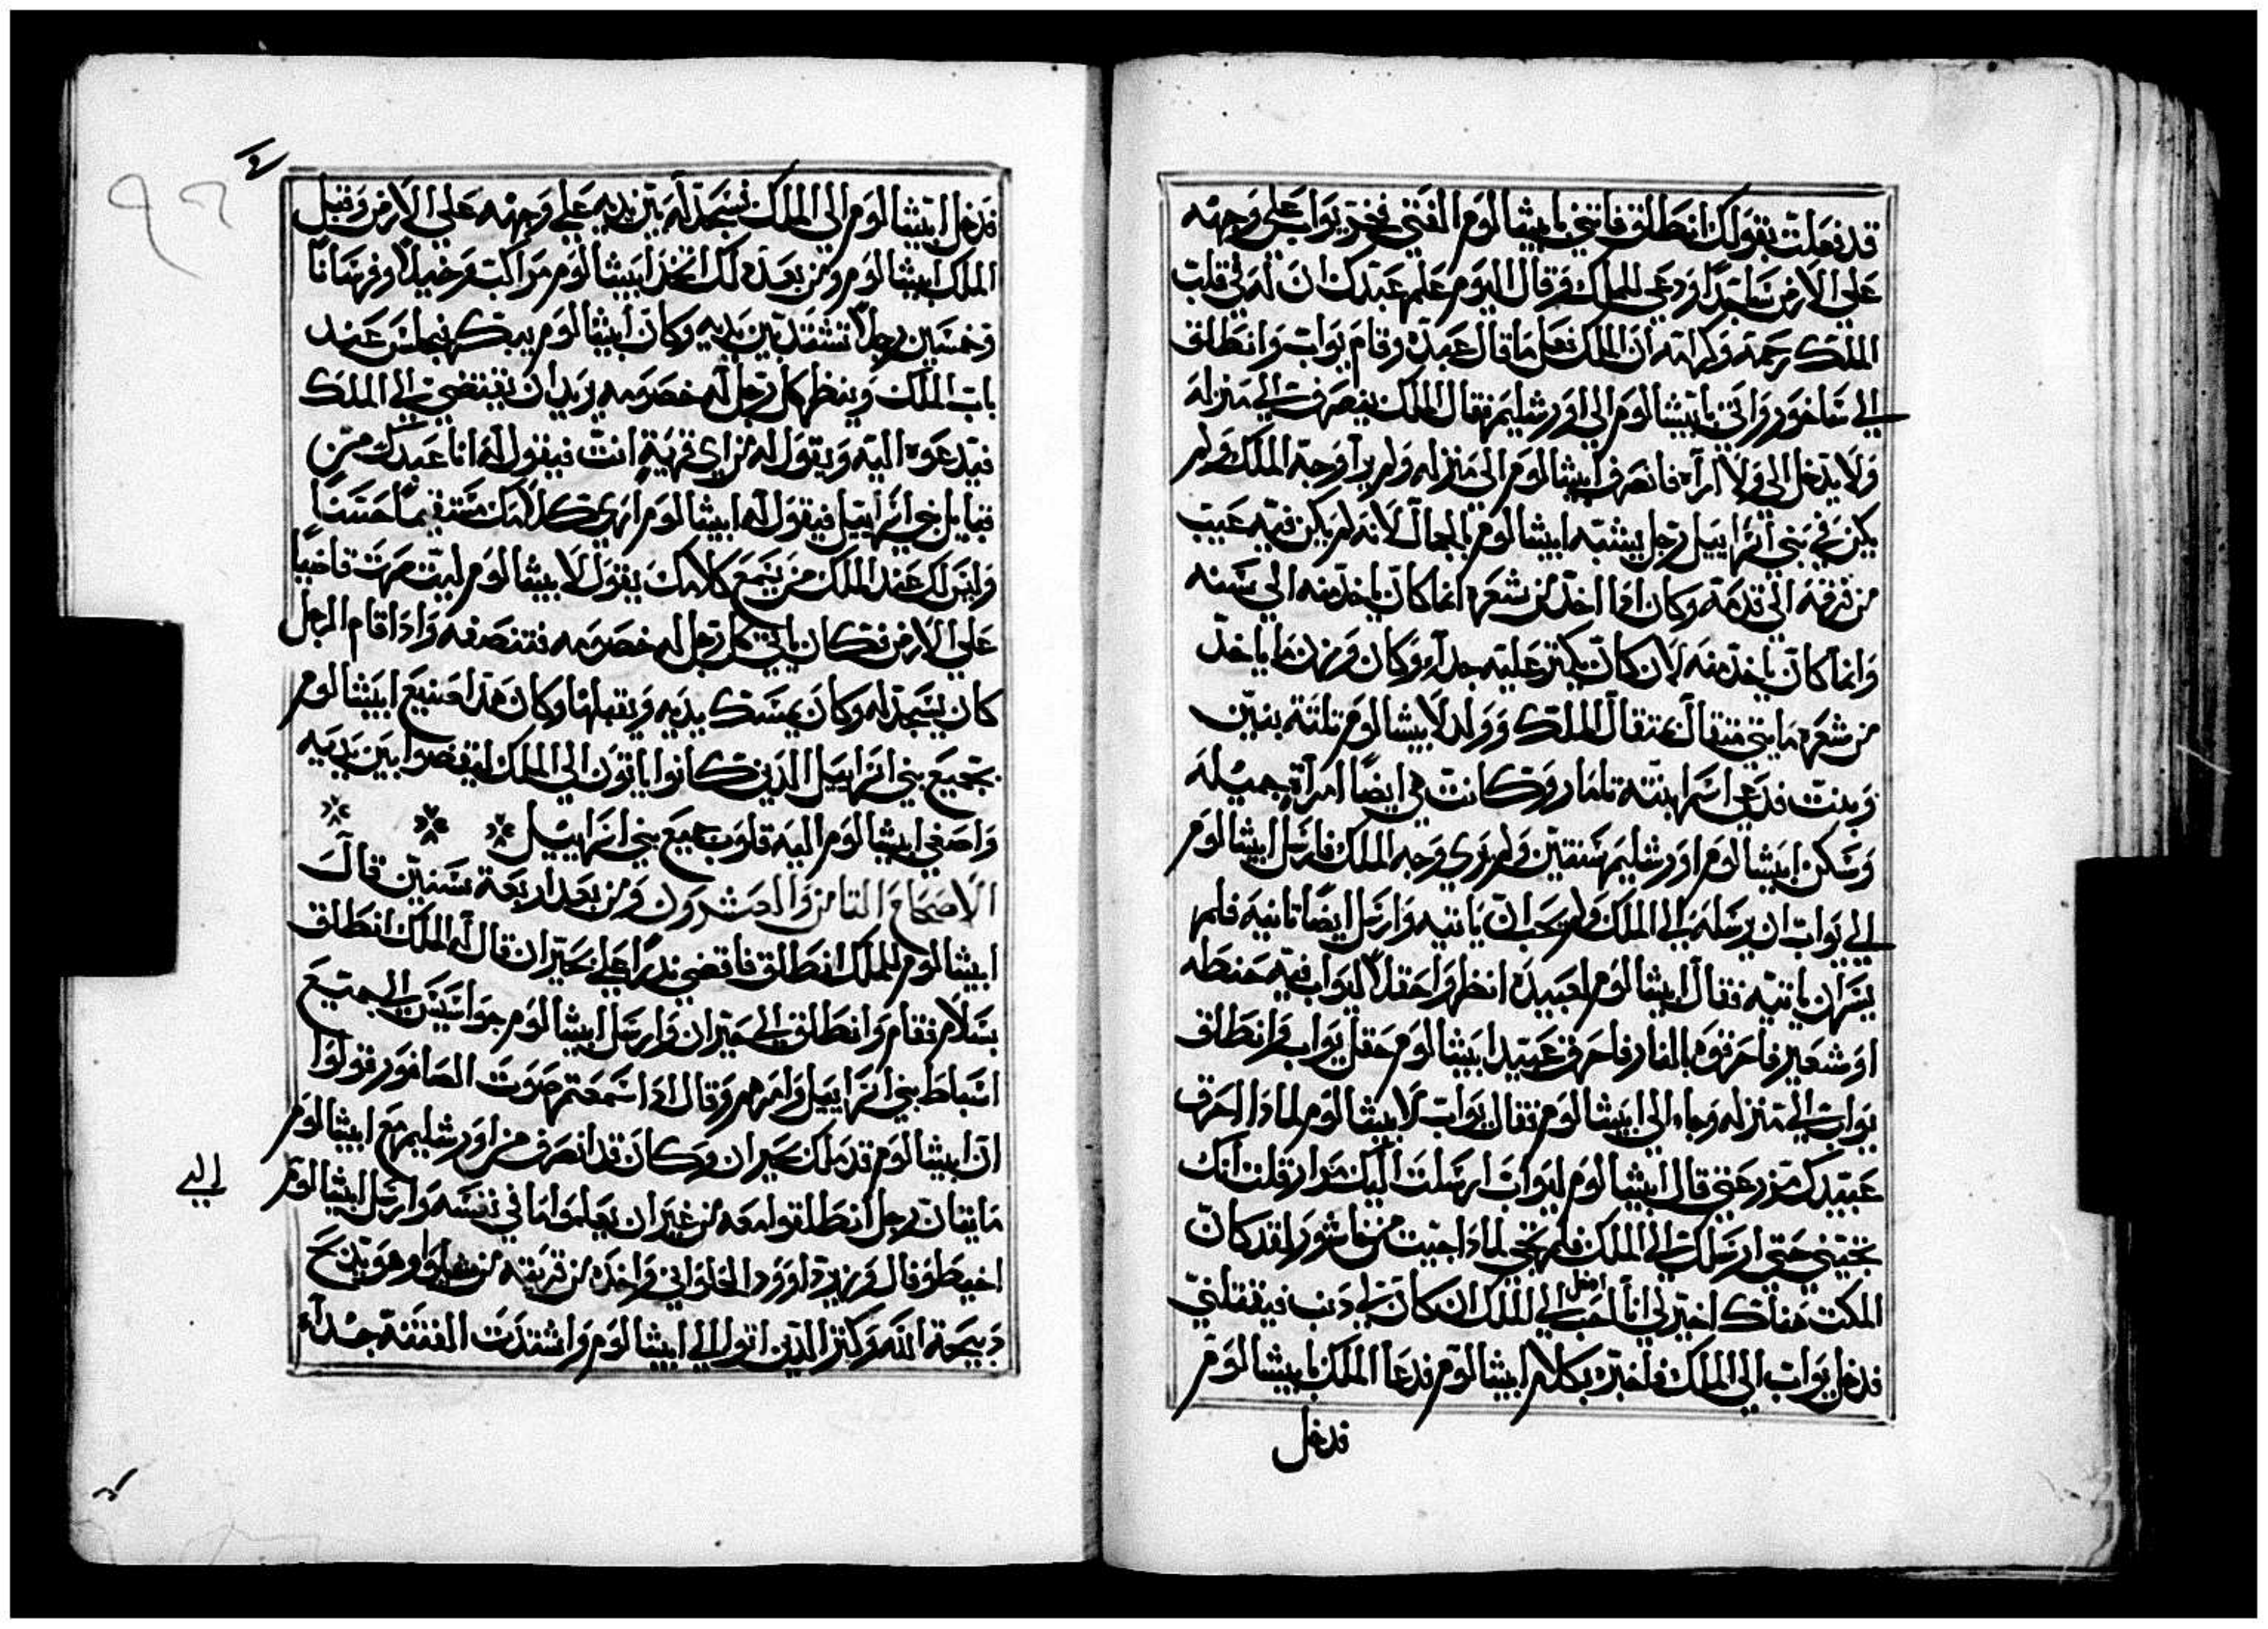 قد فعلت بقولك انطلق فاتني بابيشالوم الفتي فخر يواب علي وجهه
علي الارض ساجدا ودعي للملك وقال اليوم علم عبدك ان له في قلب
الملك رحمة وكرامه ان الملك فعل ما قال عبده وقام يواب وانطلق
الي شاخور واتي بابيشالوم الي اورشليم فقال الملك ينصرف الي منزله
ولا يدخل الي ولا اراه فانصرف ابيشالوم الي منزله ولم يرا وجه الملك ولم
يكن في بني اسراييل رجل يشبه ابيشالوم بالجمال لانه لم يكن فيه عيب
من قرنه الي قدمه وكان اذا اخد من شعره انما كان ياخد منه الي سنه
وانما كان ياخد منه لان كان يكتر عليه جدا وكان وزن ما ياخد
من شعره مايتي متقال بمتقال الملك وولد لابيشالوم تلتة بنين
وبنت فدعي اسم ابنته تامار وكانت هي ايضا امراة جميله
وسكن ابيشالوم اورشليم سنتين ولم يري وجه الملك فارسل ابيشالوم
الي يواب ان يرسله الي الملك ولم يحب ان ياتيه وارسل ايضا تانية فلم
يسر ان ياتيه فقال ابيشالوم لعبيده انظروا حقلا ليواب فيه حنطه
او شعير فاحرقوه بالنار فاحرق عبيد ابيشالوم حقل يواب وانطلق
يواب الي منزله وجاء الي ابيشالوم فقال يواب لابيشالوم لمادا احرق
عبيدك مزرعتي قال ابيشالوم ليواب ارسلت اليك مرار قلت انك
تجيني حتي ارسلك الي الملك فلم تجي لمادا جيت من فاشور لقد كان
المكت هناك اخير لي انا احب ادخل الي الملك ان كان لي دنب فيقتلني
فدخل يواب الي الملك فاخبره بكلام ابيشالوم فدعا الملك بابيشالوم
فدخل
فدخل ابيشالوم الي الملك فسجد له بين يديه علي وجهه علي الارض وقبل
الملك ابيشالوم ومن بعد دلك اتخد ابيشالوم مراكب وخيلا وفرسانا
وخمسين رجلا تشتد بين يديه وكان ابيشالوم يبكر فيجلس عند
باب الملك وينظر كل رجل له خصومه يريد ان يقتضي الي الملك
فيدعوه اليه ويقول له من اي قرية انت فيقول له انا عبدك من
قبايل اسراييل فيقول له ابيشالوم اري كلامك مستقيما حسنا
وليس لك عند الملك من يسمع كلامك يقول لابيشالوم ليت صرت قاضيا
علي الارض فكان ياتي كل رجل له خصومه فتنصفه وادا قام الرجل
كان يسجد له وكان يمسك يديه ويقبلها وكان هدا صنيع ابيشالوم
بجميع بني اسراييل الدين كانوا ياتون الي الملك ليقضوا بين يديه
واصغي ابيشالوم اليه قلوب جميع بني اسراييل
الاصحاح التامن والعشرون ومن بعد اربعة سنين قال
ابيشالوم للملك انطلق فاقضي ندرا علي بحيران قال له الملك انطلق
بسلام فقام وانطلق الي حيران وارسل ابيشالوم جواسيس الي جميع
اسباط بني اسراييل وامرهم وقال ادا سمعتم صوت الصافور قولوا
ان ابيشالوم قد ملك بحيران وكان قد انصرف من اورشليم مع ابيشالوم
مايتان رجل انطلقوا معه من غير ان يعلموا ما في نفسه وارسل ابيشالوم
الي
اخيطوفال وزير داوود الحلواني واخده من قريته من شيلوا وهو يدبح
دبيحة الله وكتر الدين اتوا الي ابيشالوم واشتدت الفتنة جدا